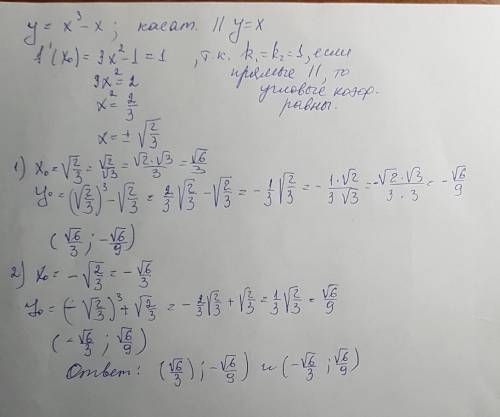 y = x³ - x ; касат. // y = x
f'(x₀) = 3x² - 1 = 1 , т.к. k₁ = k₂ = 1, если
3x² = 2 прямые //, то
x² = 2/3 угловые коэф.
x = ± √(2/3) равны.
1) x₀ = √(2/3) = √2/√3 = √2·√3/3 = √6/3
y₀ = (√(2/3))³ - √(2/3) = 2/3 √(2/3) - √(2/3) = - 1/3 √(2/3) = - 1·√2/3√3 = -√2·√3/3·3 = - √6/9
(√6/3 ; -√6/9)
2) x₀ = - √(2/3) = - √6/3
y₀ = (- √(2/3))³ + √(2/3) = - 2/3 √(2/3) + √(2/3) = 1/3 √(2/3) = √6/9
(-√6/3 ; √6/9)
Ответ: (√6/3) ; -√6/9) и (-√6/3 ; √6/9)